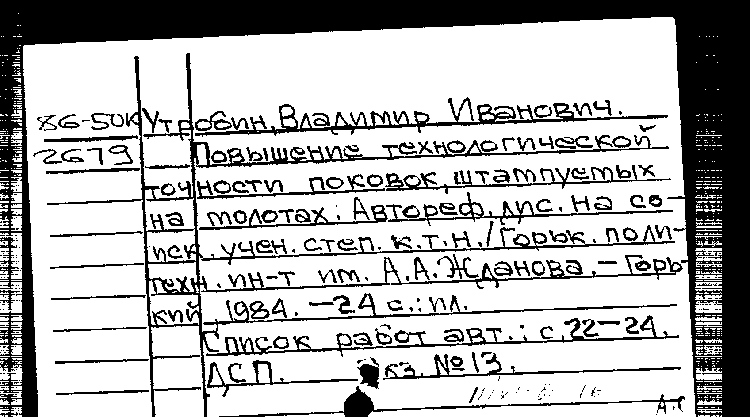 86-50К Утробин, Владимир Иванович.
2679 Повышение технологической
точности поковок, штампуемых
на молотах: Автореф. дис. на со-
иск. учен. степ. к.т.н./Горьк. поли-
техн. ин-т им. А.А.Жданова. – Горь-
кий, 1984. – 24 с.: ил.
Список работ авт.: с.22–24.
ДСП. кз. №13.